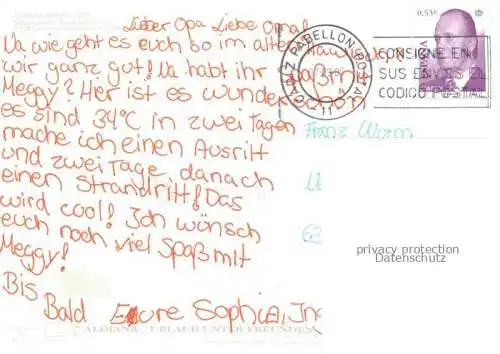 Lieber Opa Liebe Oma!
Na wie geht es euch so im alten Haus?
wir ganz gut! Na habt ihr
Meggy? Hier ist es wunderschön,
es sind 34°C in zwei Tagen
mache ich einen Ausritt
und zwei Tage danach
einen Strandritt! Das
wird cool! Ich wünsch
euch noch viel Spaß mit
Meggy!
Bis
Bald Eure Sophia, In
0,53€
CONSIGNE EN
SUS ENVIOS EL
CODIGO POSTAL
CADIZ PABELLON POSTAL
11
Franz Wurm
privacy protection
Datenschutz
ALDIANA URLAUB UNTER FREUNDEN